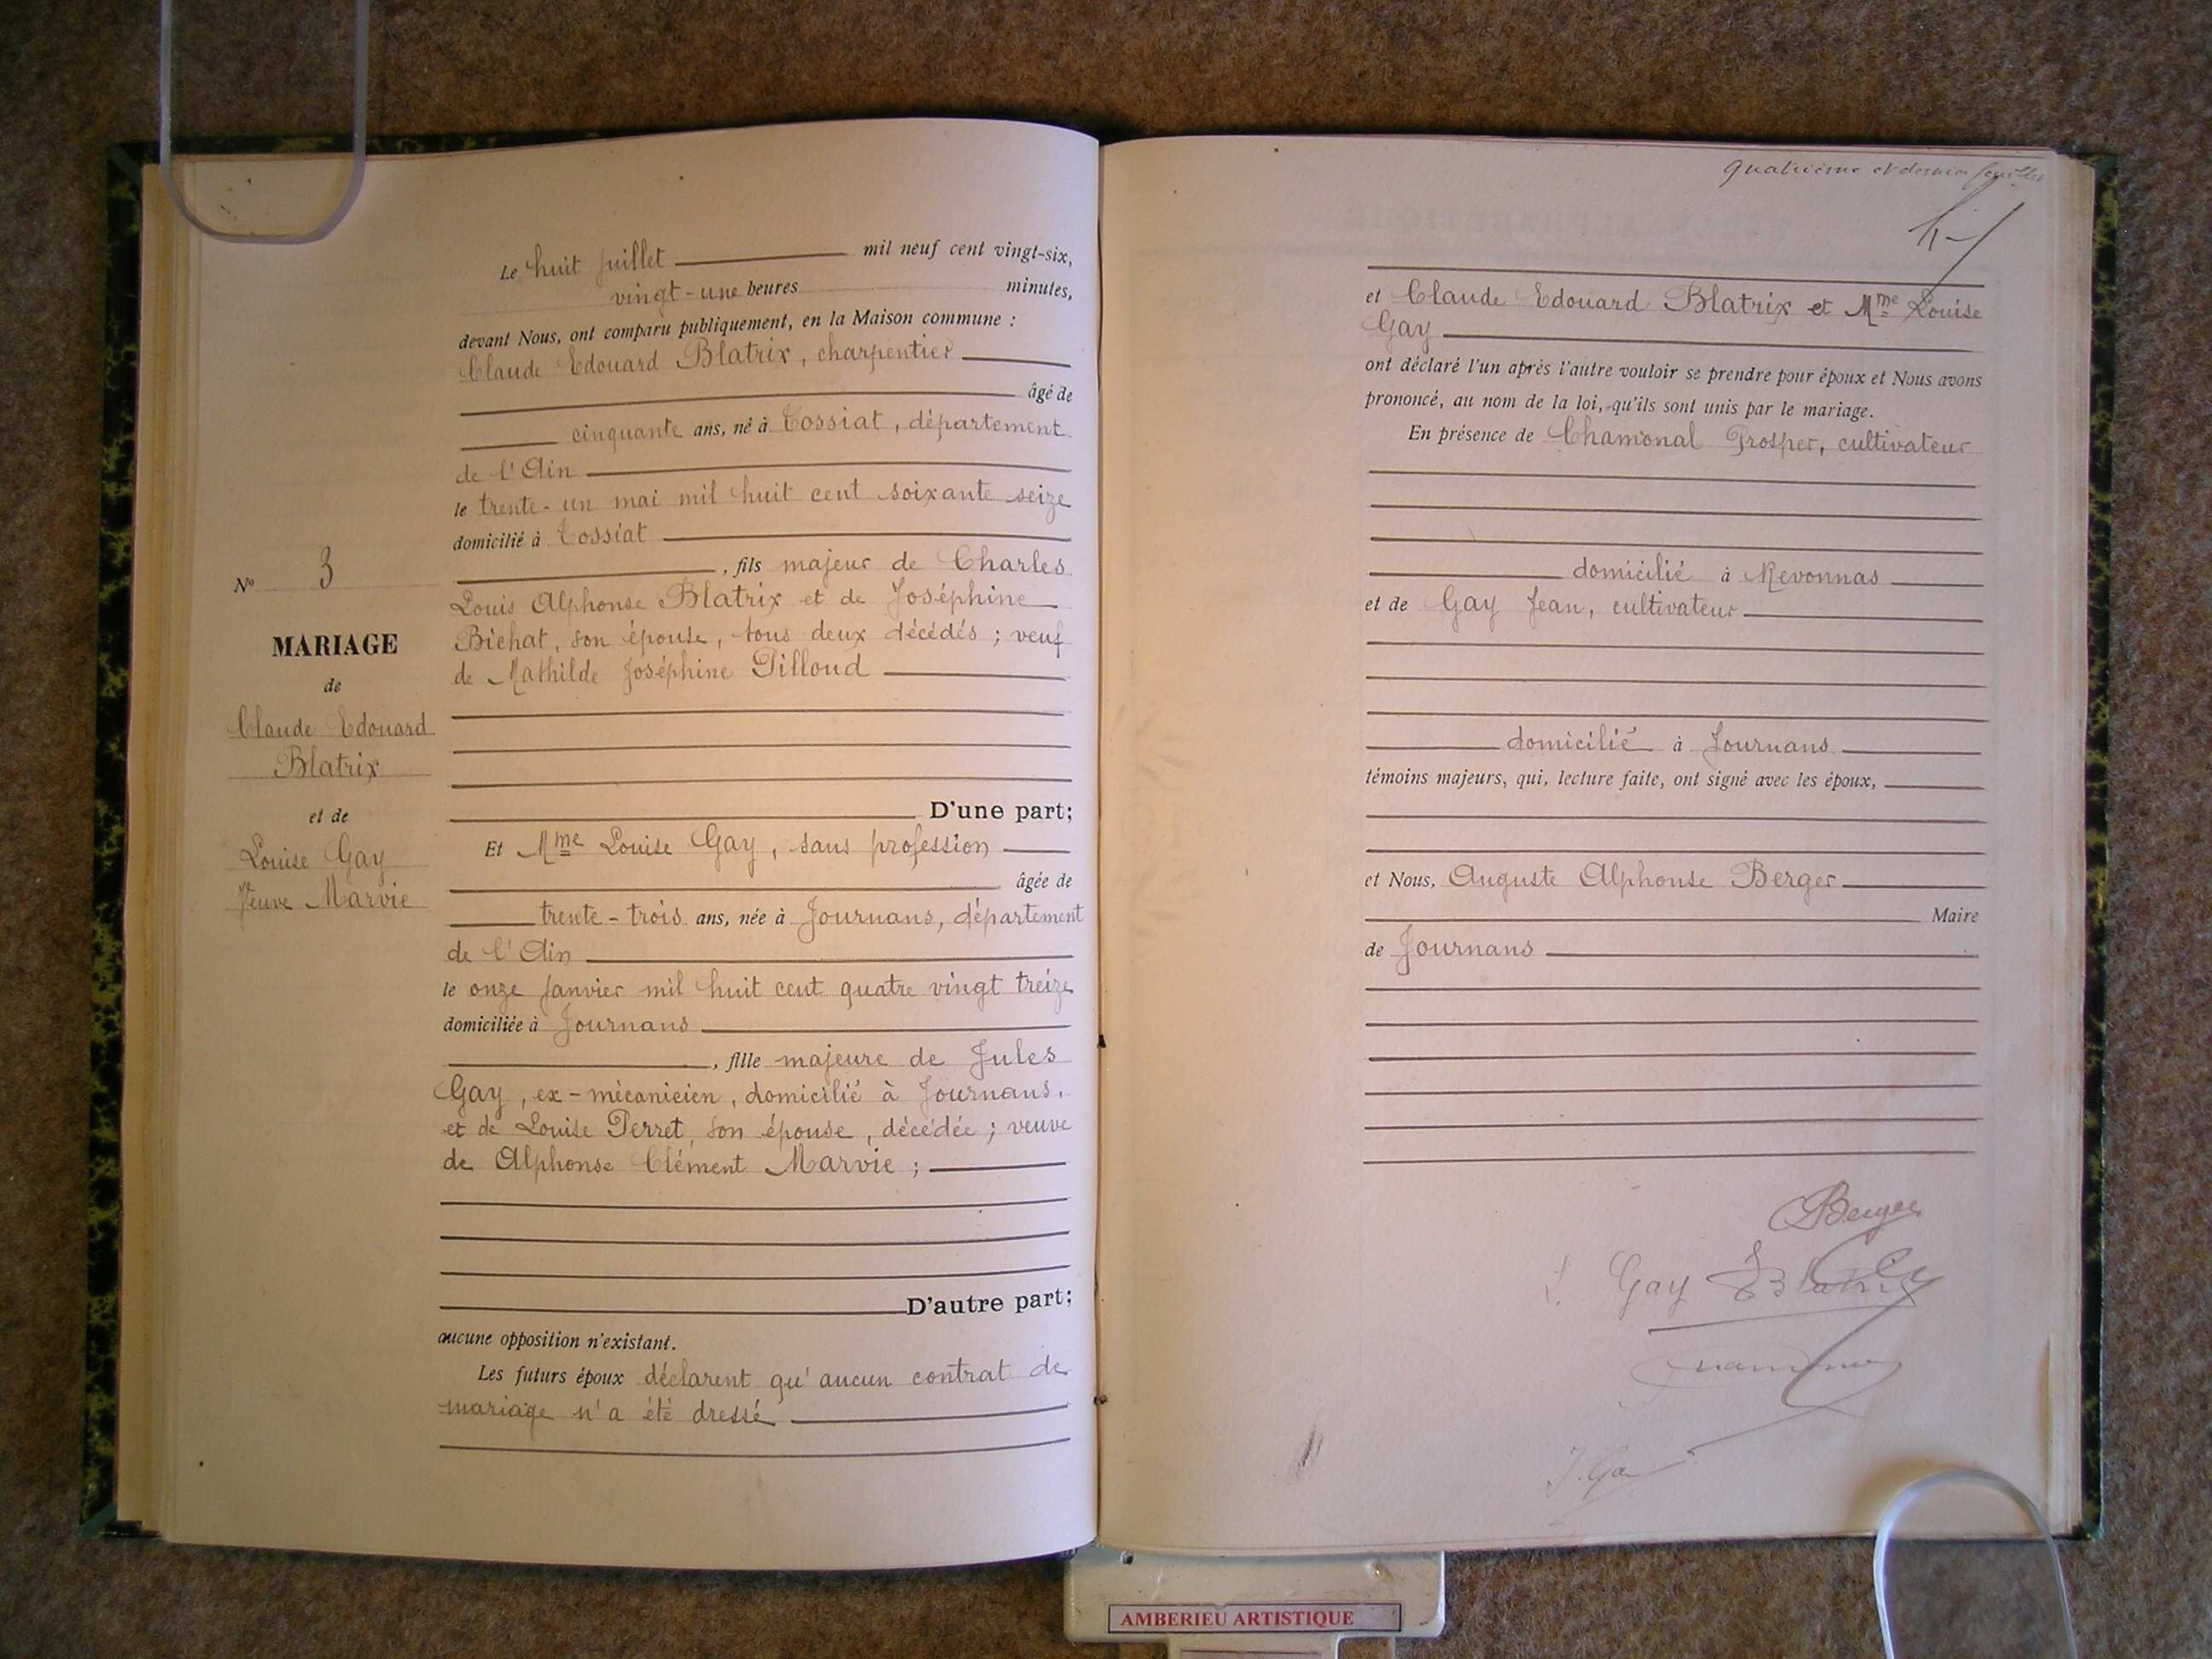 Le huit juillet mil neuf cent vingt-six,
vingt-une heures minutes,
devant Nous, ont comparu publiquement, en la Maison commune :
Claude Edouard Blatrix, charpentier
âgé de
cinquante ans, né à Tossiat, département
de l'Ain
le trente-un mai mil huit cent soixante seize
domicilié à Tossiat
, fils majeur de Charles
Louis Alphonse Blatrix et de Joséphine
Bichat, son épouse, tous deux décédés ; veuf
de Mathilde Joséphine Pilloud
D'une part;
Et Mme Louise Gay, sans profession
âgée de
trente-trois ans, née à Journans, département
de l'Ain
le onze janvier mil huit cent quatre vingt treize
domiciliée à Journans
, fille majeure de Jules
Gay, ex-mécanicien, domicilié à Journans,
et de Louise Perret, son épouse, décédée ; veuve
de Alphonse Clément Marvie ;
D'autre part;
aucune opposition n'existant.
Les futurs époux déclarent qu'aucun contrat de
mariage n'a été dressé
No 3
MARIAGE
de
Claude Edouard
Blatrix
et de
Louise Gay
Veuve Marvie
quatrième et dernier feuillet
et Claude Edouard Blatrix et Mme Louise
Gay
ont déclaré l'un après l'autre vouloir se prendre pour époux et Nous avons
prononcé, au nom de la loi, qu'ils sont unis par le mariage.
En présence de Chamonal Prosper, cultivateur
domicilié à Revonnas
et de Gay Jean, cultivateur
domicilié à Journans
témoins majeurs, qui, lecture faite, ont signé avec les époux,
et Nous, Auguste Alphonse Berger
Maire
de Journans
Berger
L. Gay Blatrix
J. Gay
AMBERIEU ARTISTIQUE